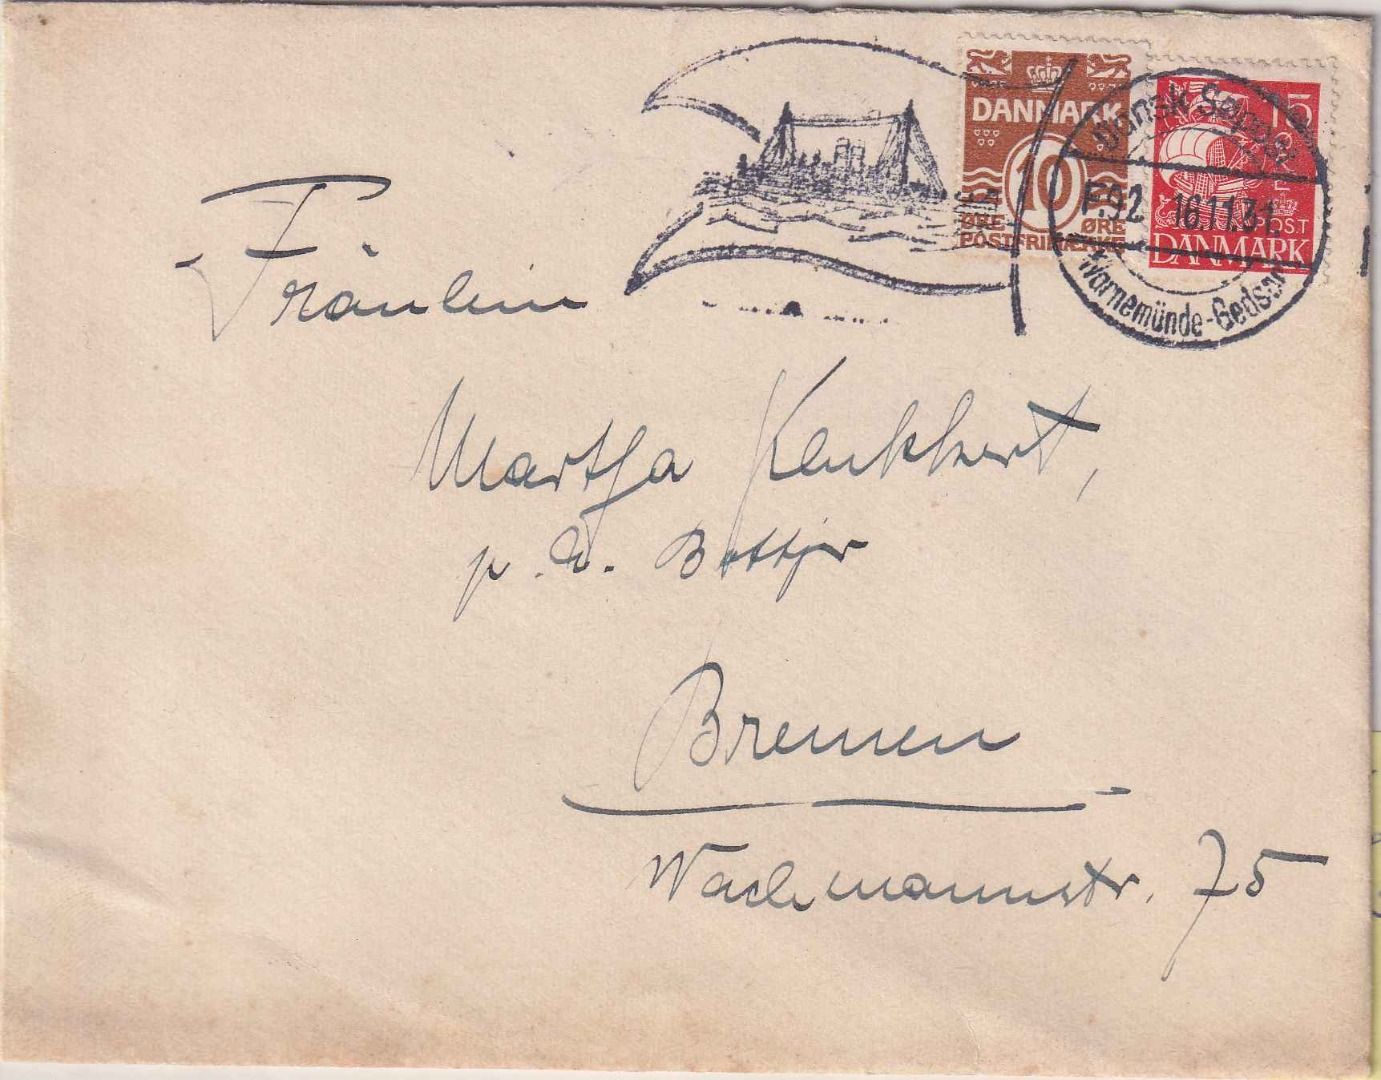 DANMARK
10
ØRE ØRE
POSTFRIMÆRKE
15
POST
DANMARK
Dansk Søpost
F.92 16.11.31.
Warnemünde-Gedser
Fräulein
Martha
p. A. Bottjer
Bremen
Wachmannstr. 75